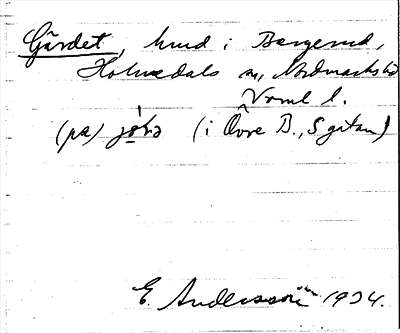 Gärdet, hmd i Bergerud,
Holmedals sn, Nordmarks hd
Värml l.
(på) (i Övre B., S gatan)
E. Andersson 1934.